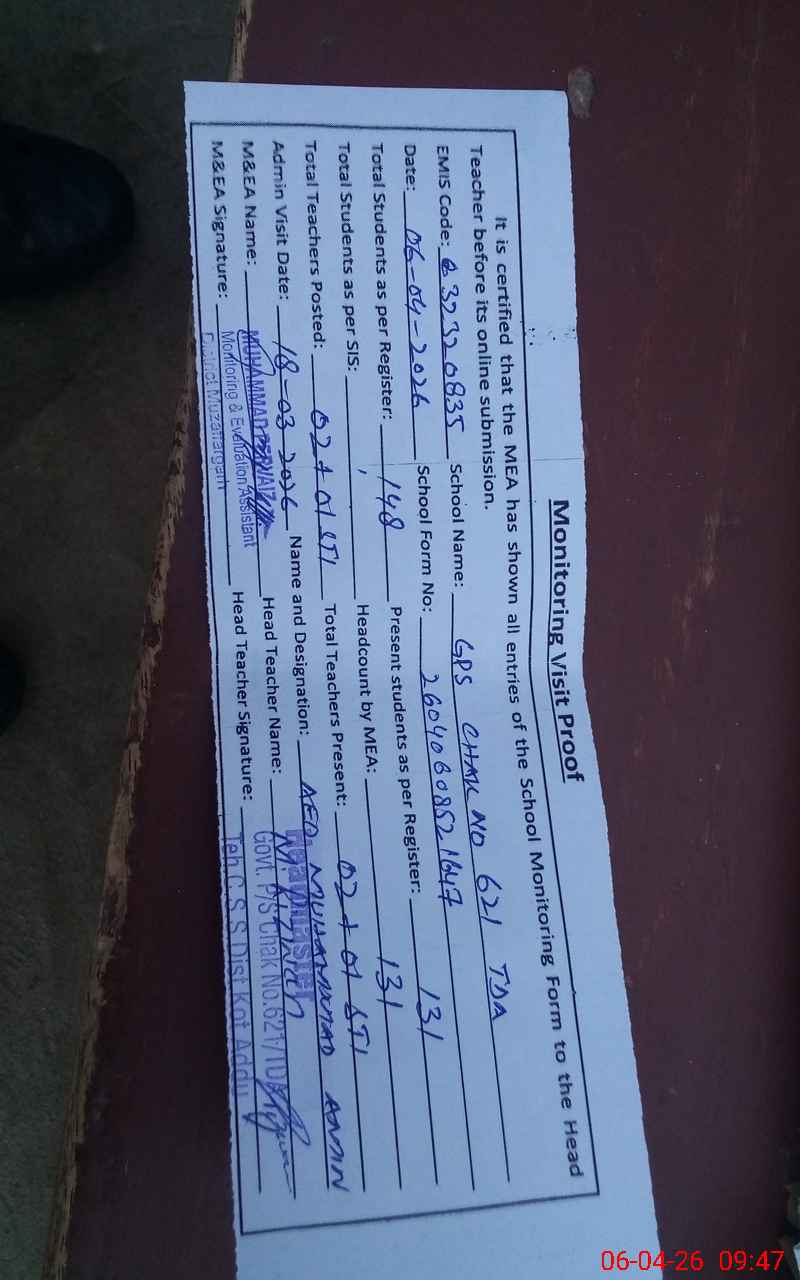 Monitoring Visit Proof
It is certified that the MEA has shown all entries of the School Monitoring Form to the Head
Teacher before its online submission.
EMIS Code: 32320835 School Name: GPS CHAK NO 621 TDA
Date: 06-04-2026 School Form No: 26040608521647
Total Students as per Register: 148 Present students as per Register: 131
Total Students as per SIS: Headcount by MEA: 131
Total Teachers Posted: 02+01 STI Total Teachers Present: 02+01 STI
Admin Visit Date: 18-03-2026 Name and Designation: AEO MUHAMMAD AMIN
M&EA Name: MUHAMMAD PERVAIZ Head Teacher Name:
M&EA Signature: Head Teacher Signature:
Monitoring & Evaluation Assistant
District Muzaffargarh
Headmaster
Govt. P/S Chak No.621/TDA
Teh C.S.S Dist Kot Addu
06-04-26 09:47